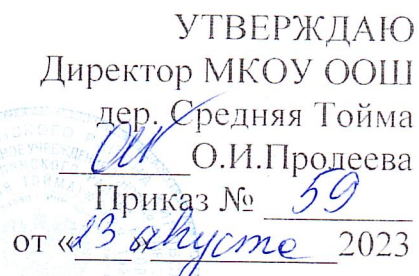 УТВЕРЖДАЮ
Директор МКОУ ООШ
дер. Средняя Тойма
О.И.Продеева
Приказ № 59
от «23 августа 2023